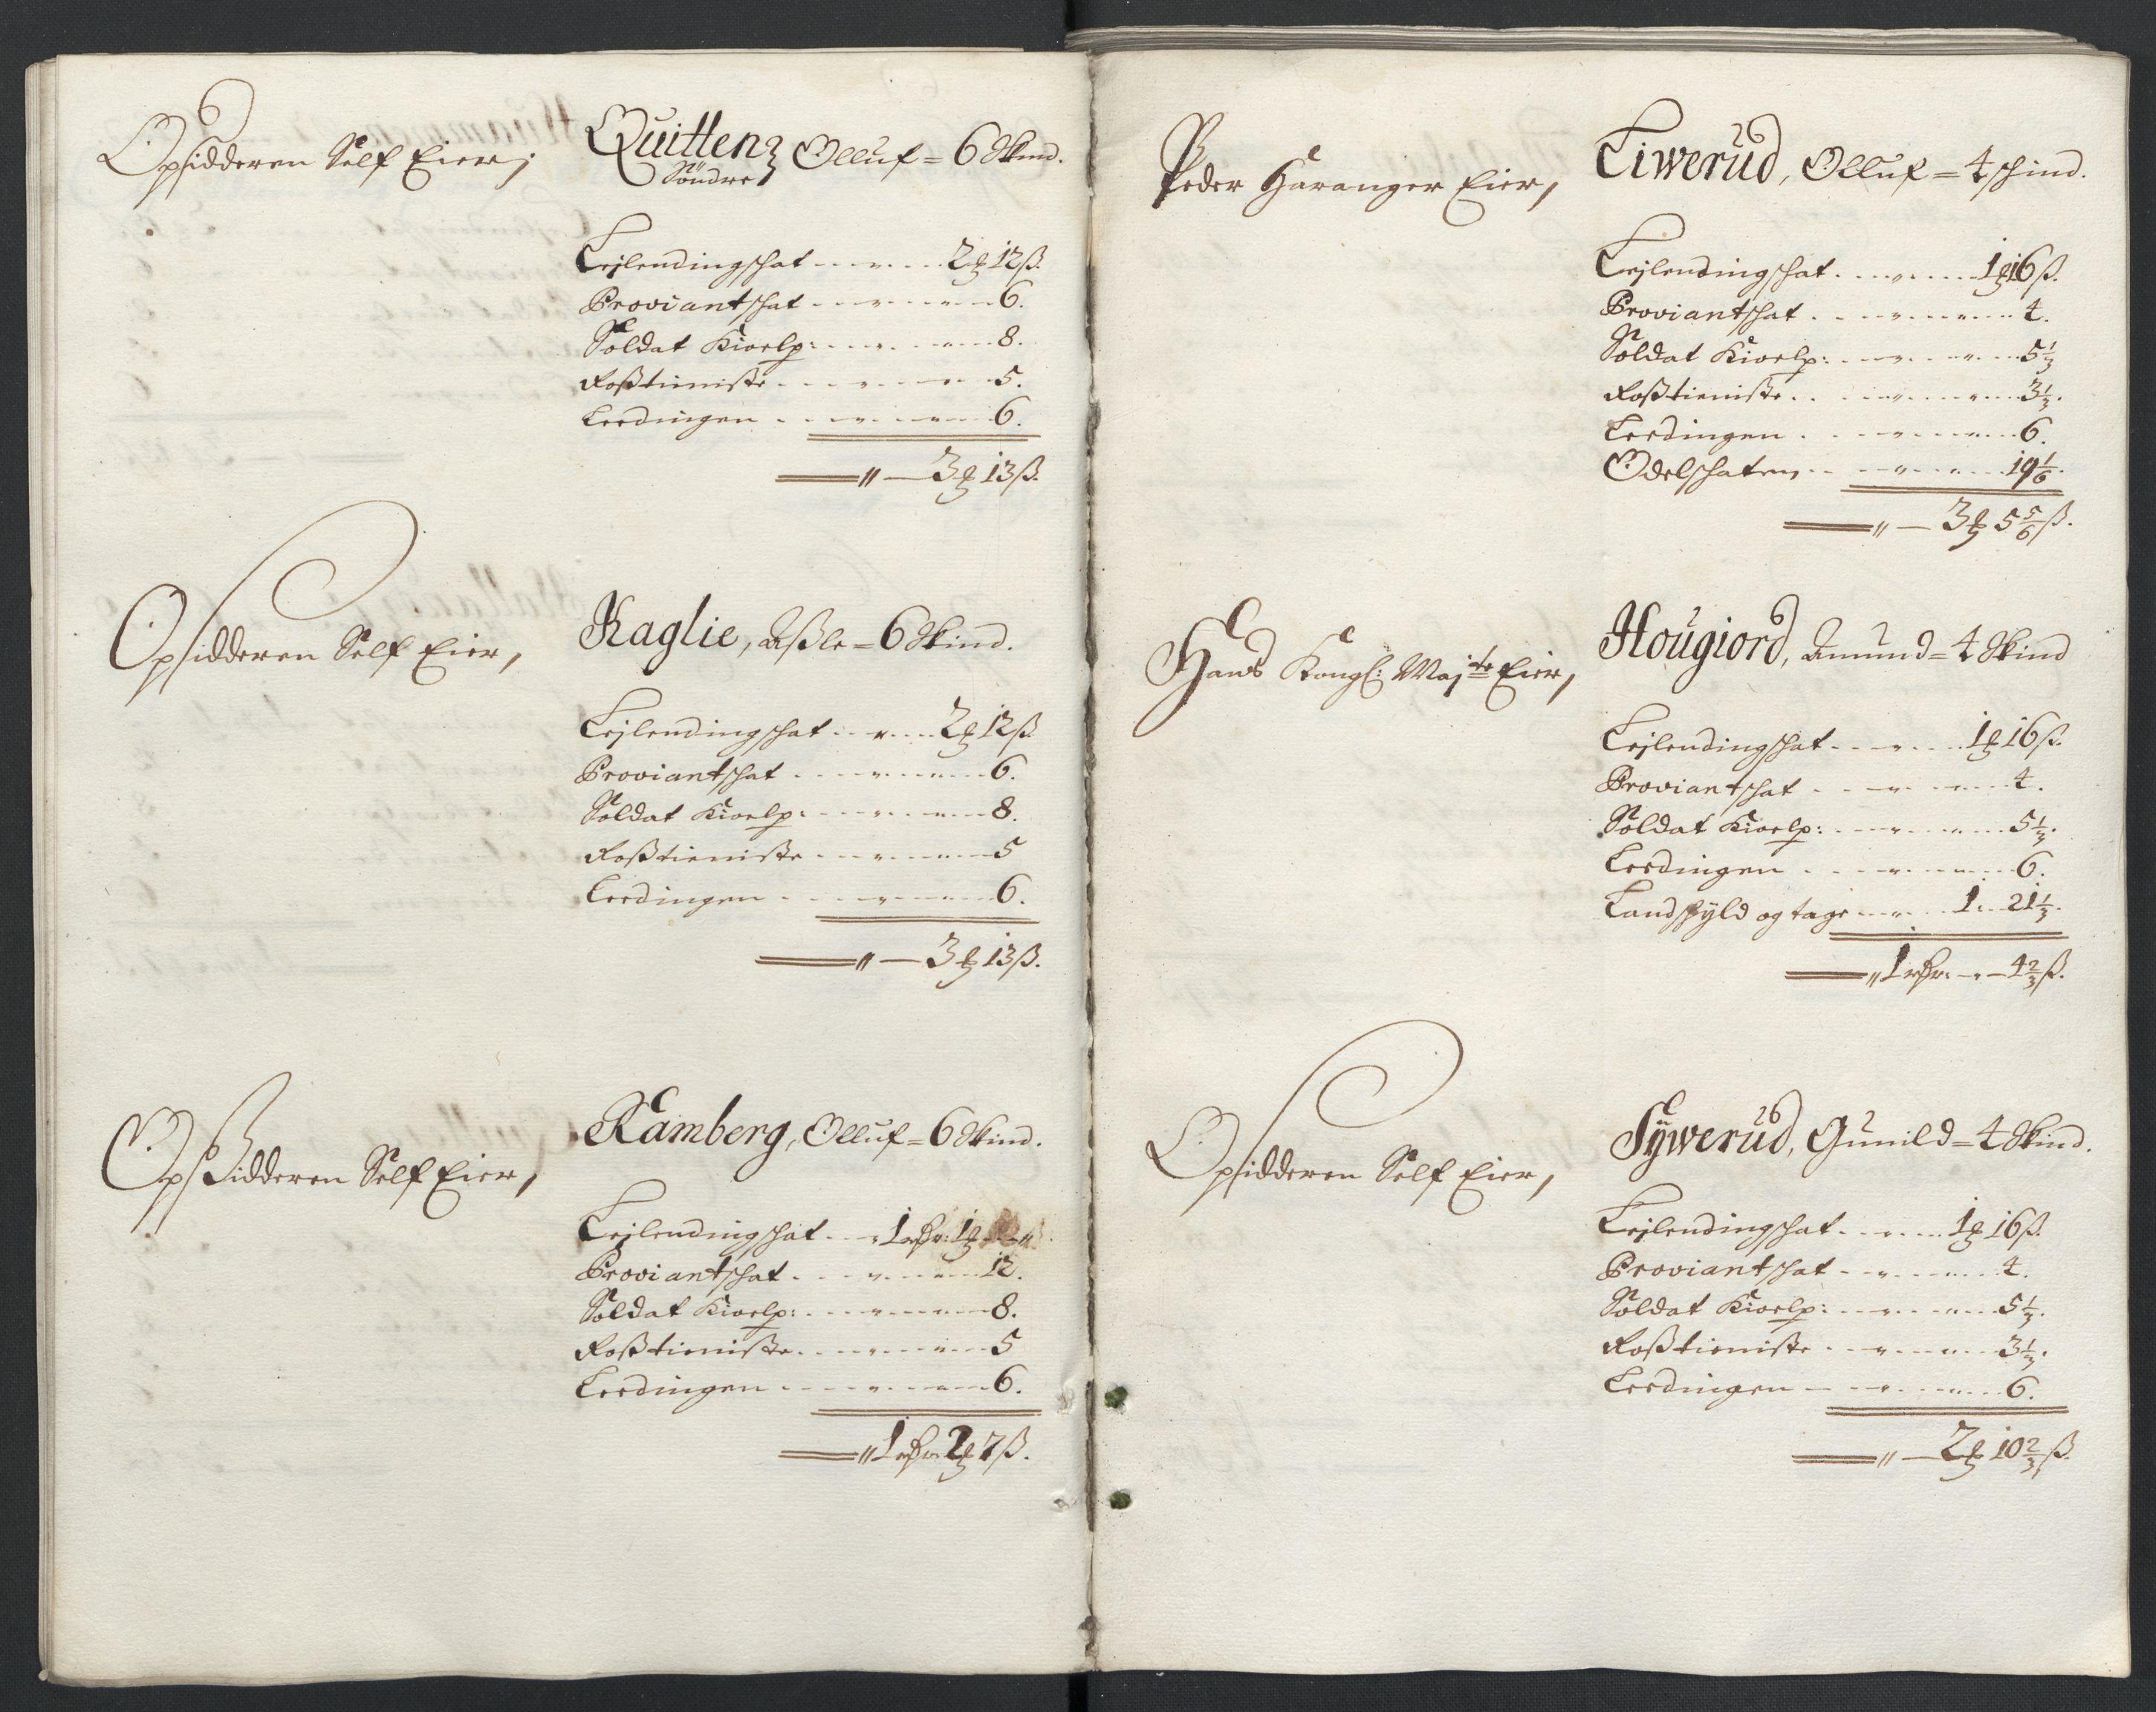 Opsidderen Self Eier,
Quitten Olluf = 6 Skind.
Söndre
Lejlendingschat 2 12 ß.
Proviantschat 6.
Soldat Kioelp: 8.
Roßtieniste 5.
Leedingen 6.
3 13 ß.
Opsidderen Self Eier,
Raglie, Aßle = 6 Skind.
Lejlendingschat 2 12 ß.
Proviantschat 6.
Soldat Kioelp: 8.
Roßtieniste 5
Leedingen 6.
3 13 ß.
Opsidderen Self Eier,
Ramberg, Olluf = 6 Skind.
Lejlendingschat 1 rdr: 1
Proviantschat 12.
Soldat Kioelp: 8.
Roßtieniste 5
Leedingen 6.
1 rdr: 2 7 ß.
Peder Haranger Eier,
Liwerud, Olluf = 4 schind.
Lejlendingschat 1 16 ß.
Proviantschat 4.
Soldat Kioelp: 5 1/3
Roßtieniste 3 1/3.
Leedingen 6.
Odelschaten 19 1/6.
3 5 5/6 ß.
Hans Kongl: Majte Eier,
Hougiord, Amund = 4 Skind
Lejlendingschat 1 16 ß.
Proviantschat 4.
Soldat Kioelp: 5 1/3.
Leedingen 6.
Landschyld og tage 1 21 1/3.
1 rdr: 4 2/3 ß.
Opsidderen Self Eier,
Sÿwerud, Gunild = 4 Skind.
Lejlendingschat 1 16 ß.
Proviantschat 4.
Soldat Kioelp: 5 1/3.
Roßtieniste 3 1/3.
Leedingen 6.
2 10 2/3 ß.